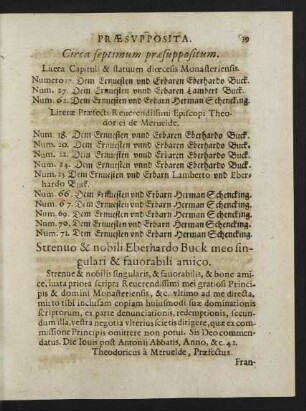 PRÆSVPPOSITA. 39
Circa septimum præsuppositum.
Litera Capituli & statuum diœcesis Monasteriensis.
Numero 17. Dem Ernuesten vnnd Erbaren Eberhardo Buck.
Num. 27. Dem Ernuesten vnnd Erbaren Lambert Buck.
Num. 62. Dem Ernuesten vnd Erbarn Herman Schencking.
Literæ Præfecti Reuerendissimi Episcopi Theo-
dorici de Meruelde.
Num. 18. Dem Ernuesten vnnd Erbaren Eberhardo Buck.
Num. 20. Dem Ernuesten vnnd Erbaren Eberhardo Buck.
Num. 22. Dem Ernuesten vnnd Erbaren Eberhardo Buck.
Num. 24. Dem Ernuesten vnnd Erbaren Eberhardo Buck.
Num. 25 Dem Ernuesten vnd Erbarn Lamberto vnd Eber-
hardo Buck.
Num. 66. Dem Ernuesten vnd Erbarn Herman Schencking.
Num. 67. Dem Ernuesten vnd Erbarn Herman Schencking.
Num. 69. Dem Ernuesten vnd Erbarn Herman Schencking.
Num. 70. Dem Ernuesten vnd Erbarn Herman Schencking.
Num. 71. Dem Ernuesten vnd Erbarn Herman Schencking.
Strenuo & nobili Eberhardo Buck meo sin-
gulari & fauorabili amico.
Strenue & nobilis singularis, & fauorabilis, & bone ami-
ce, iuxta priora scripta Reuerendissimi mei gratiosi Princi-
pis & domini Monasteriensis, &c. vltimo ad me directa,
mitto tibi inclusam copiam huiusmodi suæ dominationis
scriptorum, ex parte denunciationis, redemptionis, secun-
dum illa, vestra negotia vlterius scietis dirigere, quæ ex com-
missione Principis omittere non potui. Sis Deo commen-
datus. Die Iouis post Antonii Abbatis, Anno, &c. 42.
Theodoricus à Meruelde, Præfectus.
Fran-